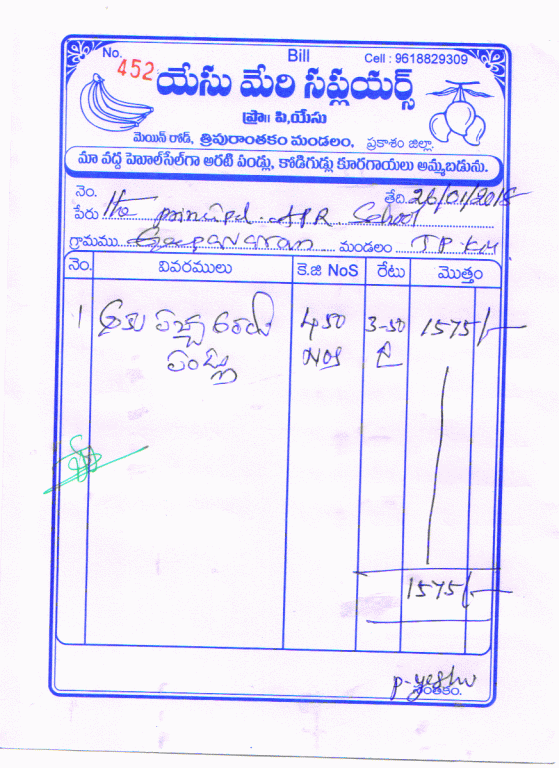 No. 452 Bill Cell : 9618829309
యేసు మేరి సప్లయర్స్
ప్రొ॥ పి,యేసు
మెయిన్ రోడ్, త్రిపురాంతకం మండలం, ప్రకాశం జిల్లా.
మా వద్ద హెూల్‌సేల్‌గా అరటి పండ్లు, కోడిగుడ్లు కూరగాయలు అమ్మబడును.
నెం. తేది. 26/01/2018
పేరు The principal. APR School
గ్రామము మండలం TP. KM
నెం. వివరములు కె.జి NoS రేటు మొత్తం
1 పచ్చ 450 3-50 1575/-
పండ్లు NOS
1575/-
p-yeshu
సంతకం.